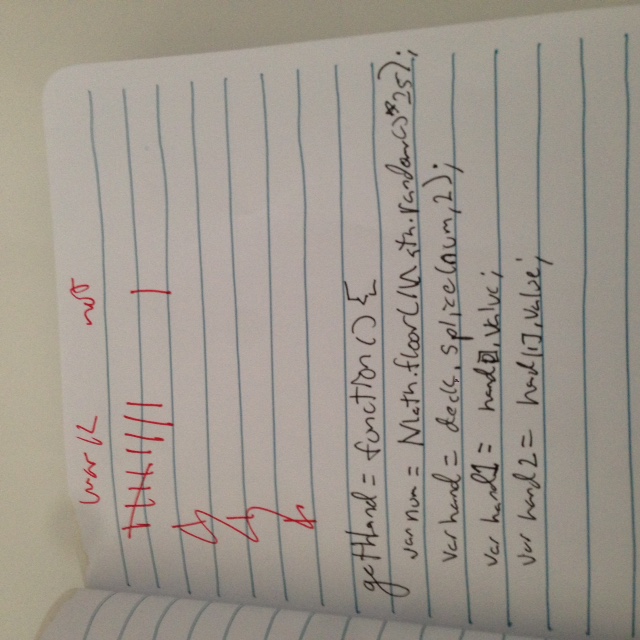 work not
getHand = function () {
var num = Math.floor(Math.random()*25);
var hand = deck.splice(num,2);
var hand1 = hand[0].value;
var hand2 = hand[1].value;